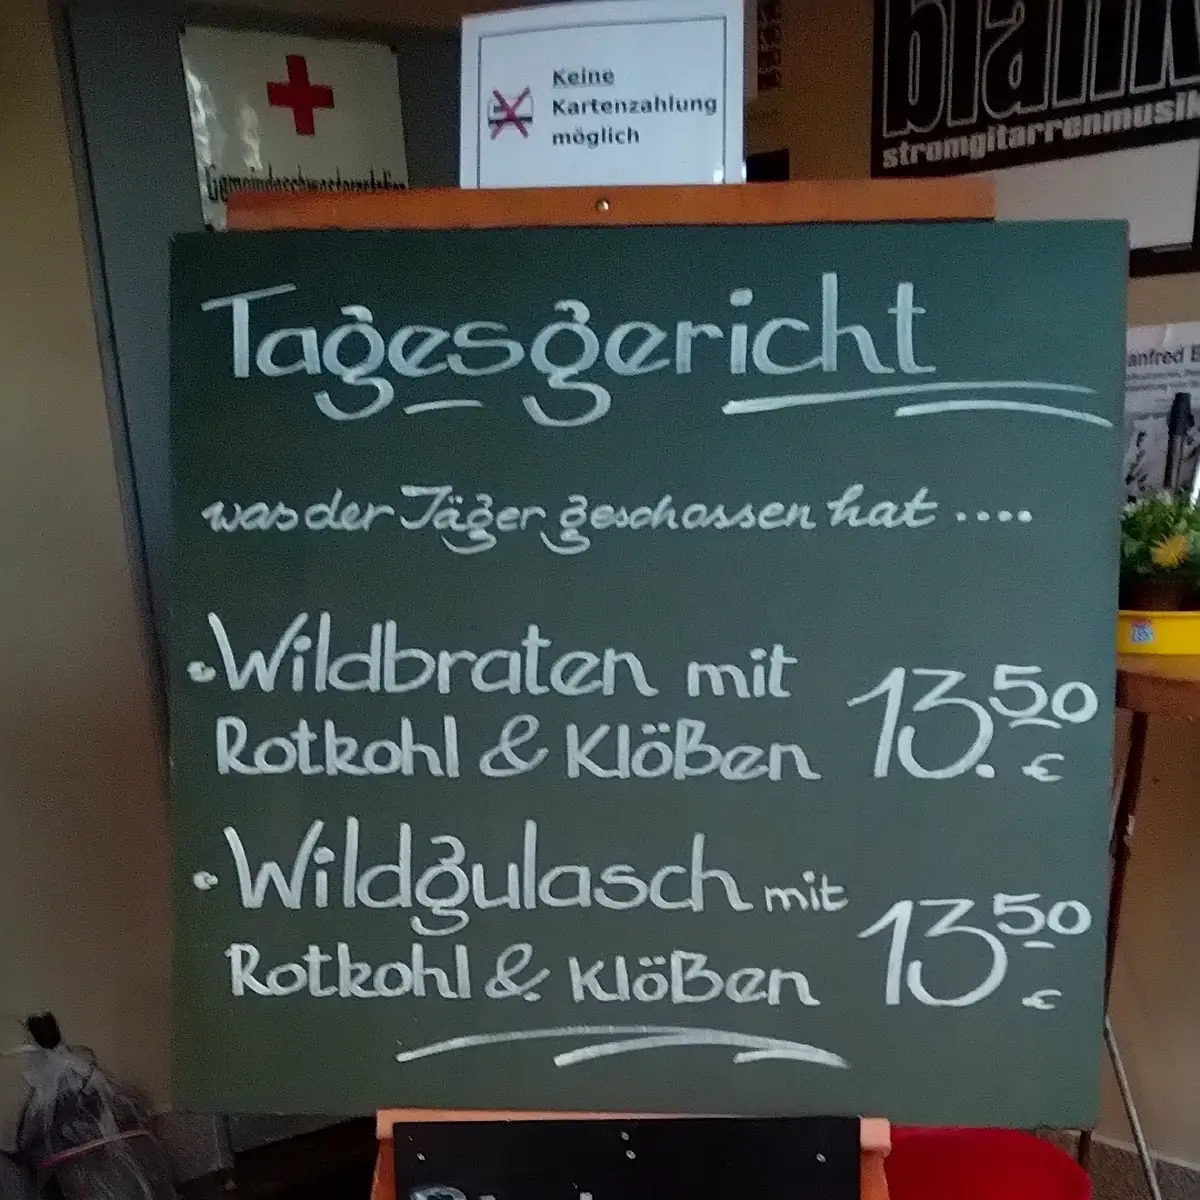 Keine
Kartenzahlung
möglich
blank
stromgitarrenmusik
Tagesgericht
was der Jäger geschossen hat ....
• Wildbraten mit
Rotkohl & Klößen 13.50 €
• Wildgulasch mit
Rotkohl & Klößen 13 50 €
anfred